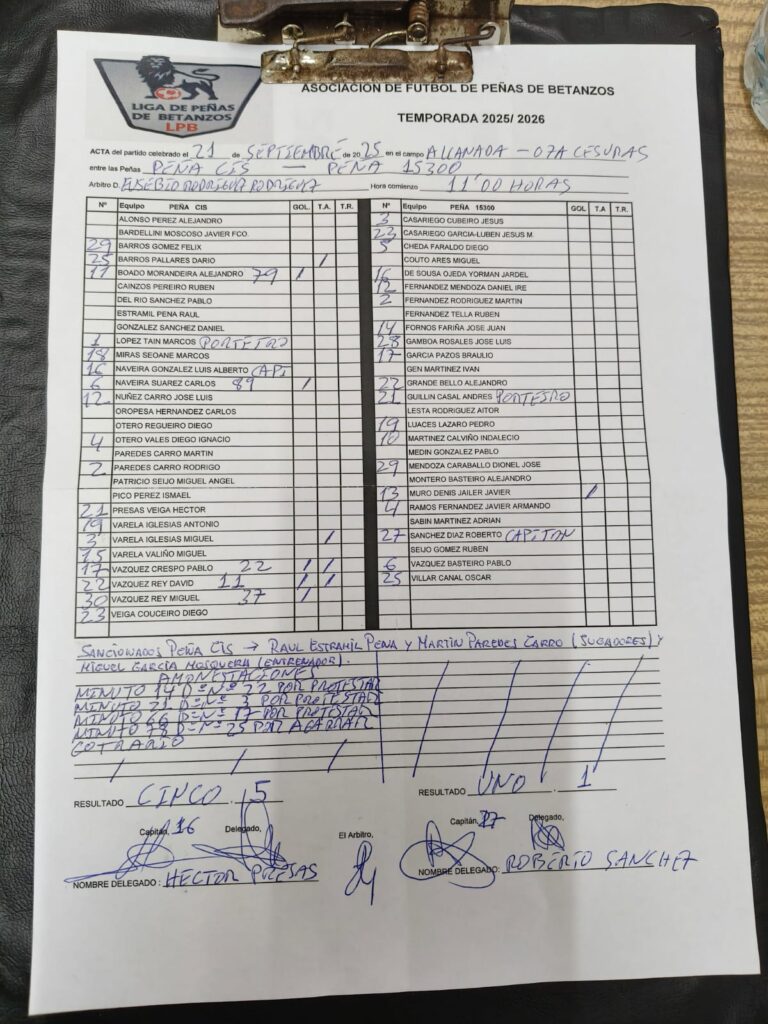 LIGA DE PEÑAS
DE BETANZOS
LPB
ASOCIACION DE FUTBOL DE PEÑAS DE BETANZOS
TEMPORADA 2025/ 2026
ACTA del partido celebrado el 21 de SEPTIEMBRE de 2025 en el campo ALLANADA - OZA CESURAS
entre las Peñas PEÑA CIS — PEÑA 15300
Arbitro D. EUSEBIO RODRIGUEZ RODRIGUEZ Hora comienzo 11'00 HORAS
Nº Equipo PEÑA CIS GOL. T.A. T.R.
ALONSO PEREZ ALEJANDRO
BARDELLINI MOSCOSO JAVIER FCO.
29 BARROS GOMEZ FELIX
25 BARROS PALLARES DARIO /
11 BOADO MORANDEIRA ALEJANDRO 79 /
CAINZOS PEREIRO RUBEN
DEL RIO SANCHEZ PABLO
ESTRAMIL PENA RAUL
GONZALEZ SANCHEZ DANIEL
1 LOPEZ TAIN MARCOS PORTERO
18 MIRAS SEOANE MARCOS
16 NAVEIRA GONZALEZ LUIS ALBERTO CAPI
6 NAVEIRA SUAREZ CARLOS 89 /
12 NUÑEZ CARRO JOSE LUIS
OROPESA HERNANDEZ CARLOS
OTERO REGUEIRO DIEGO
4 OTERO VALES DIEGO IGNACIO
PAREDES CARRO MARTIN
2 PAREDES CARRO RODRIGO
PATRICIO SEIJO MIGUEL ANGEL
PICO PEREZ ISMAEL
21 PRESAS VEIGA HECTOR
19 VARELA IGLESIAS ANTONIO
3 VARELA IGLESIAS MIGUEL /
15 VARELA VALIÑO MIGUEL
17 VAZQUEZ CRESPO PABLO 22 / /
22 VAZQUEZ REY DAVID 11 / /
30 VAZQUEZ REY MIGUEL 37 /
23 VEIGA COUCEIRO DIEGO
Nº Equipo PEÑA 15300 GOL T.A T.R.
3 CASARIEGO CUBEIRO JESUS
23 CASARIEGO GARCIA-LUBEN JESUS M.
5 CHEDA FARALDO DIEGO
COUTO ARES MIGUEL
16 DE SOUSA OJEDA YORMAN JARDEL
12 FERNANDEZ MENDOZA DANIEL IRE
2 FERNANDEZ RODRIGUEZ MARTIN
FERNANDEZ TELLA RUBEN
14 FORNOS FARIÑA JOSE JUAN
28 GAMBOA ROSALES JOSE LUIS
17 GARCIA PAZOS BRAULIO
GEN MARTINEZ IVAN
22 GRANDE BELLO ALEJANDRO
21 GUILLIN CASAL ANDRES PORTERO
LESTA RODRIGUEZ AITOR
19 LUACES LAZARO PEDRO
10 MARTINEZ CALVIÑO INDALECIO
MEDIN GONZALEZ PABLO
29 MENDOZA CARABALLO DIONEL JOSE
MONTERO BASTEIRO ALEJANDRO
13 MURO DENIS JAILER JAVIER /
4 RAMOS FERNANDEZ JAVIER ARMANDO
SABIN MARTINEZ ADRIAN
27 SANCHEZ DIAZ ROBERTO CAPITAN
SEIJO GOMEZ RUBEN
6 VAZQUEZ BASTEIRO PABLO
25 VILLAR CANAL OSCAR
SANCIONADOS PEÑA CIS → RAUL ESTRAMIL PENA Y MARTIN PAREDES CARRO (JUGADORES) Y
MIGUEL GARCÍA MOSQUERA (ENTRENADOR).
AMONESTACIONES
MINUTO 14 D=Nº 22 POR PROTESTAR
MINUTO 21 D=Nº 3 POR PROTESTAR
MINUTO 66 D=Nº 17 POR PROTESTAR
MINUTO 78 D=Nº 25 POR AGARRAR
COTRARIO
RESULTADO CINCO . 5
RESULTADO UNO . 1
Capitán, 16 Delegado, El Arbitro, Capitán, 27 Delegado,
NOMBRE DELEGADO : HECTOR PRESAS
NOMBRE DELEGADO: ROBERTO SANCHEZ